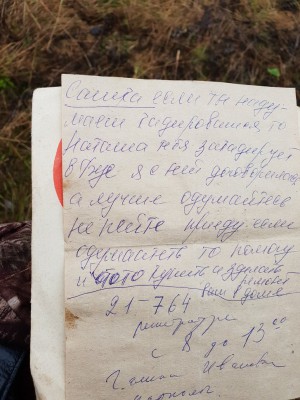 Сашка если ты наду-
маешь кодироваться, то
Наташа тебя закодирует
в Туле я с ней договорилась
а лучше одумайтесь
не пейте приеду если
одумаетесь то помогу
и стол купить и сделать
ремонт
вам в доме
21-764
регистратура
с 8 до 13 00
Галина Ивановна